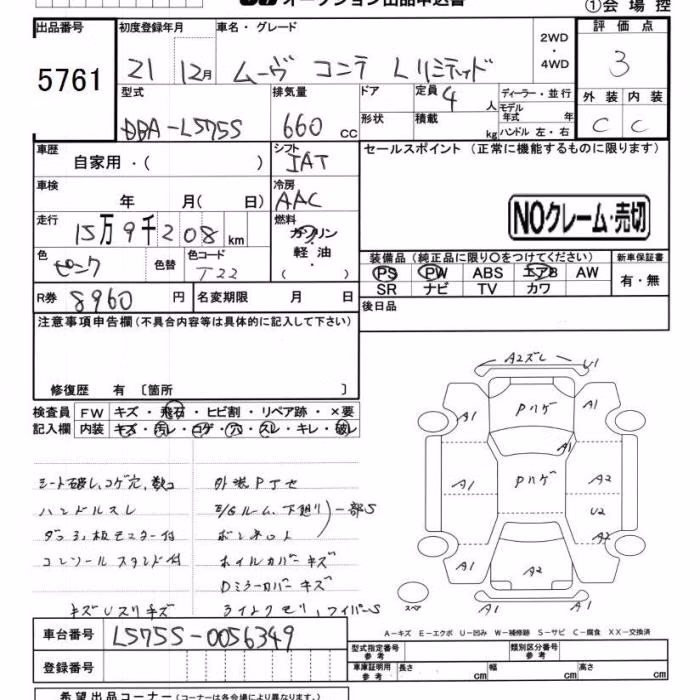 オークション出品申込書
①会場控
出品番号
5761
初度登録年月
21 12月
車名・グレード
ムーヴ コンテ L リミテッド
2WD
・
4WD
評価点
3
型式
DBA-L575S
排気量
660 cc
ドア
形状
定員 4 人
積載 kg
ディーラー・並行
モデル年式 年
ハンドル 左・右
外装 内装
C C
車歴
自家用・( )
シフト
IAT
セールスポイント (正常に機能するものに限ります)
車検
年 月( 日)
冷房
AAC
走行
15万9千208km
燃料
ガソリン
・
軽油
・
( )
NOクレーム・売切
色
ピンク
色替
色コード
T22
装備品 (純正品に限り○をつけてください)
PS PW ABS エアB AW
SR ナビ TV カワ
新車保証書
有・無
R券
8960 円
名変期限 月 日
後日品
注意事項申告欄 (不具合内容等は具体的に記入して下さい)
修復歴 有 〔箇所 〕
検査員記入欄
FW キズ・飛石・ヒビ割・リペア跡・×要
内装 キズ・汚レ・コゲ・穴・スレ・キレ・破レ
シート破レ、コゲ穴、数コ
ハンドルスレ
コンソールスタンド付
キズUスリキズ
外装PTセ
E/Gルーム、下廻り 一部S
ボンネット
ホイルカバーキズ
Dミラーカバーキズ
ワイパーS
A2ズレ
U1
A1
Pハゲ
A1
A1
A1
Pハゲ
A2
U2
A2
A1
A2
A1
A-キズ E-エクボ U-凹み W-補修跡 S-サビ C-腐食 XX-交換済
車台番号
L575S-0056349
登録番号
型式指定番号
参考
類別区分番号
参考
車庫証明用
参考
長さ cm
幅 cm
高さ cm
希望出品コーナー (コーナーは各会場により異なります。)